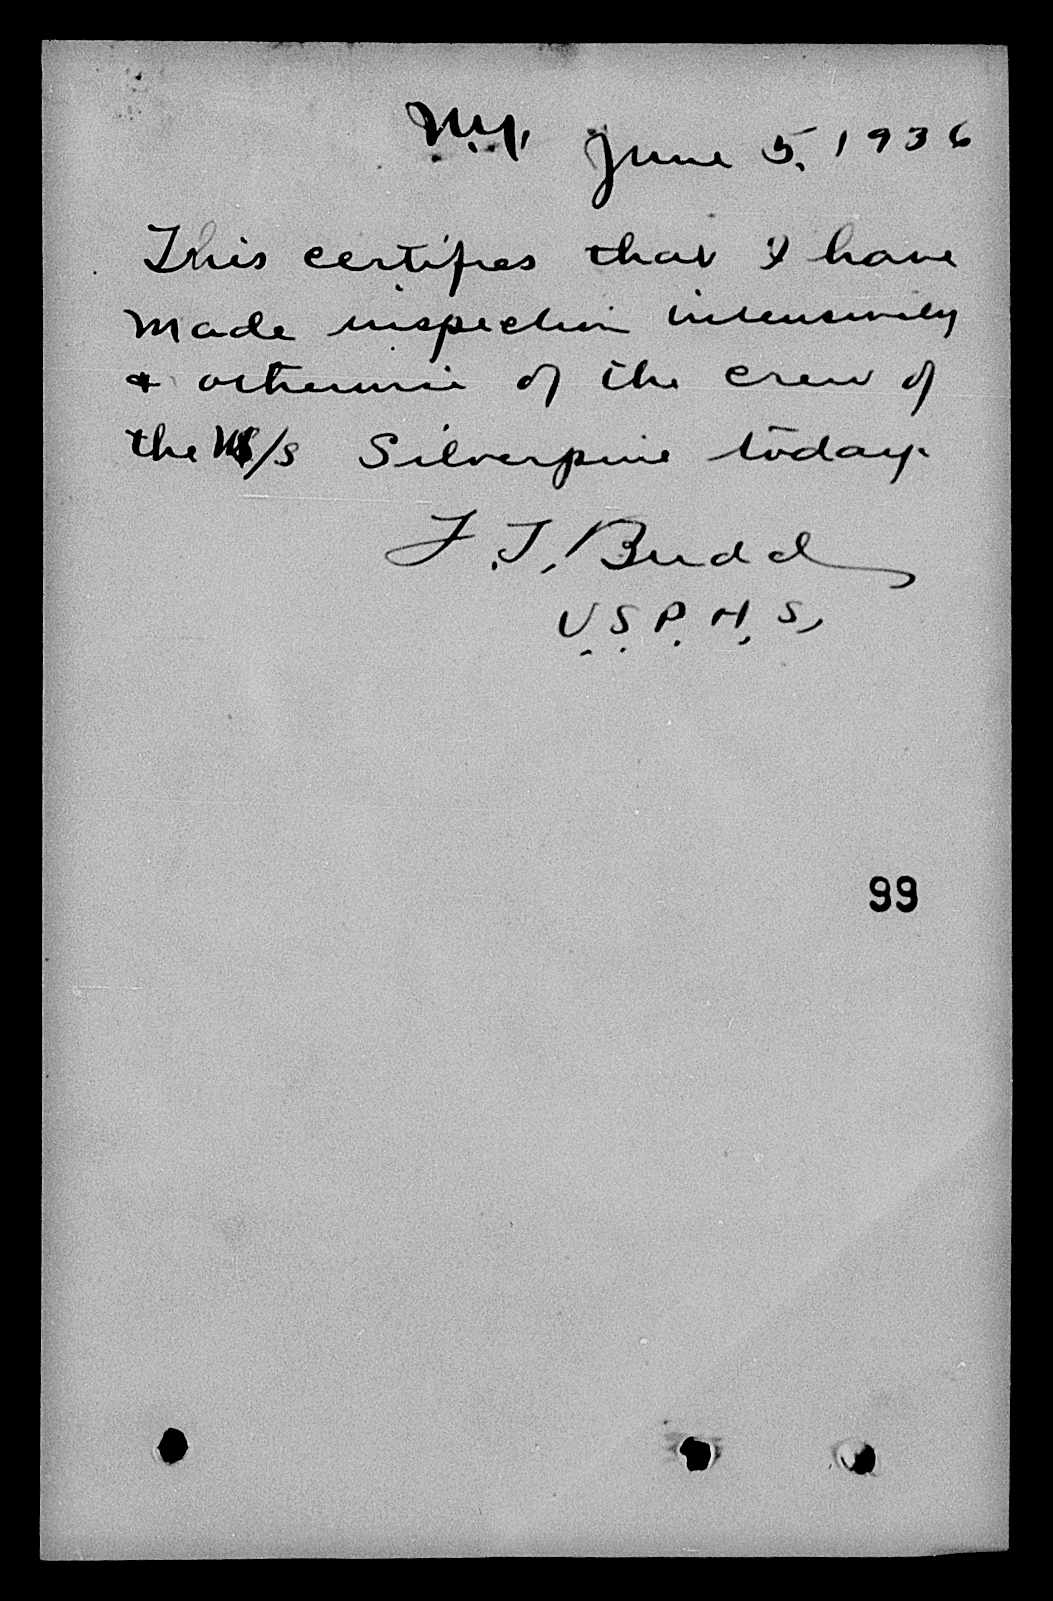 N.Y. June 5, 1936
This certifies that I have
made inspection intensively
& otherwise of the crew of
the M/S Silverpine today.
F. T. Budd
U.S.P.H.S,
99